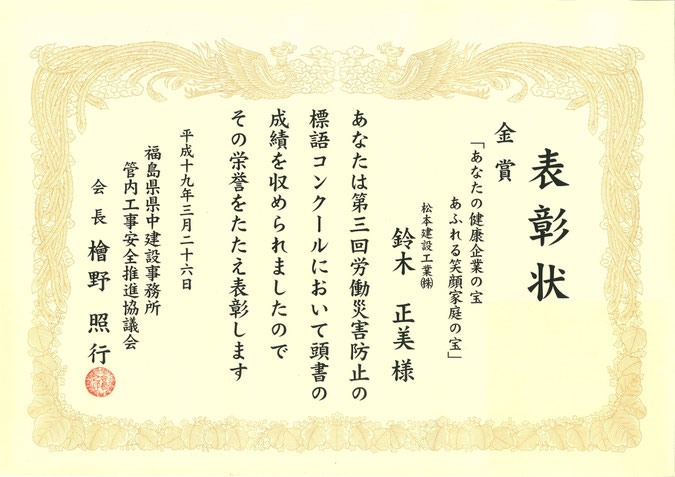 表彰状
金賞
「あなたの健康企業の宝
あふれる笑顔家庭の宝」
松本建設工業㈱
鈴木 正美 様
あなたは第三回労働災害防止の
標語コンクールにおいて頭書の
成績を収められましたので
その栄誉をたたえ表彰します
平成十九年三月二十六日
福島県県中建設事務所
管内工事安全推進協議会
会長 檜野 照行